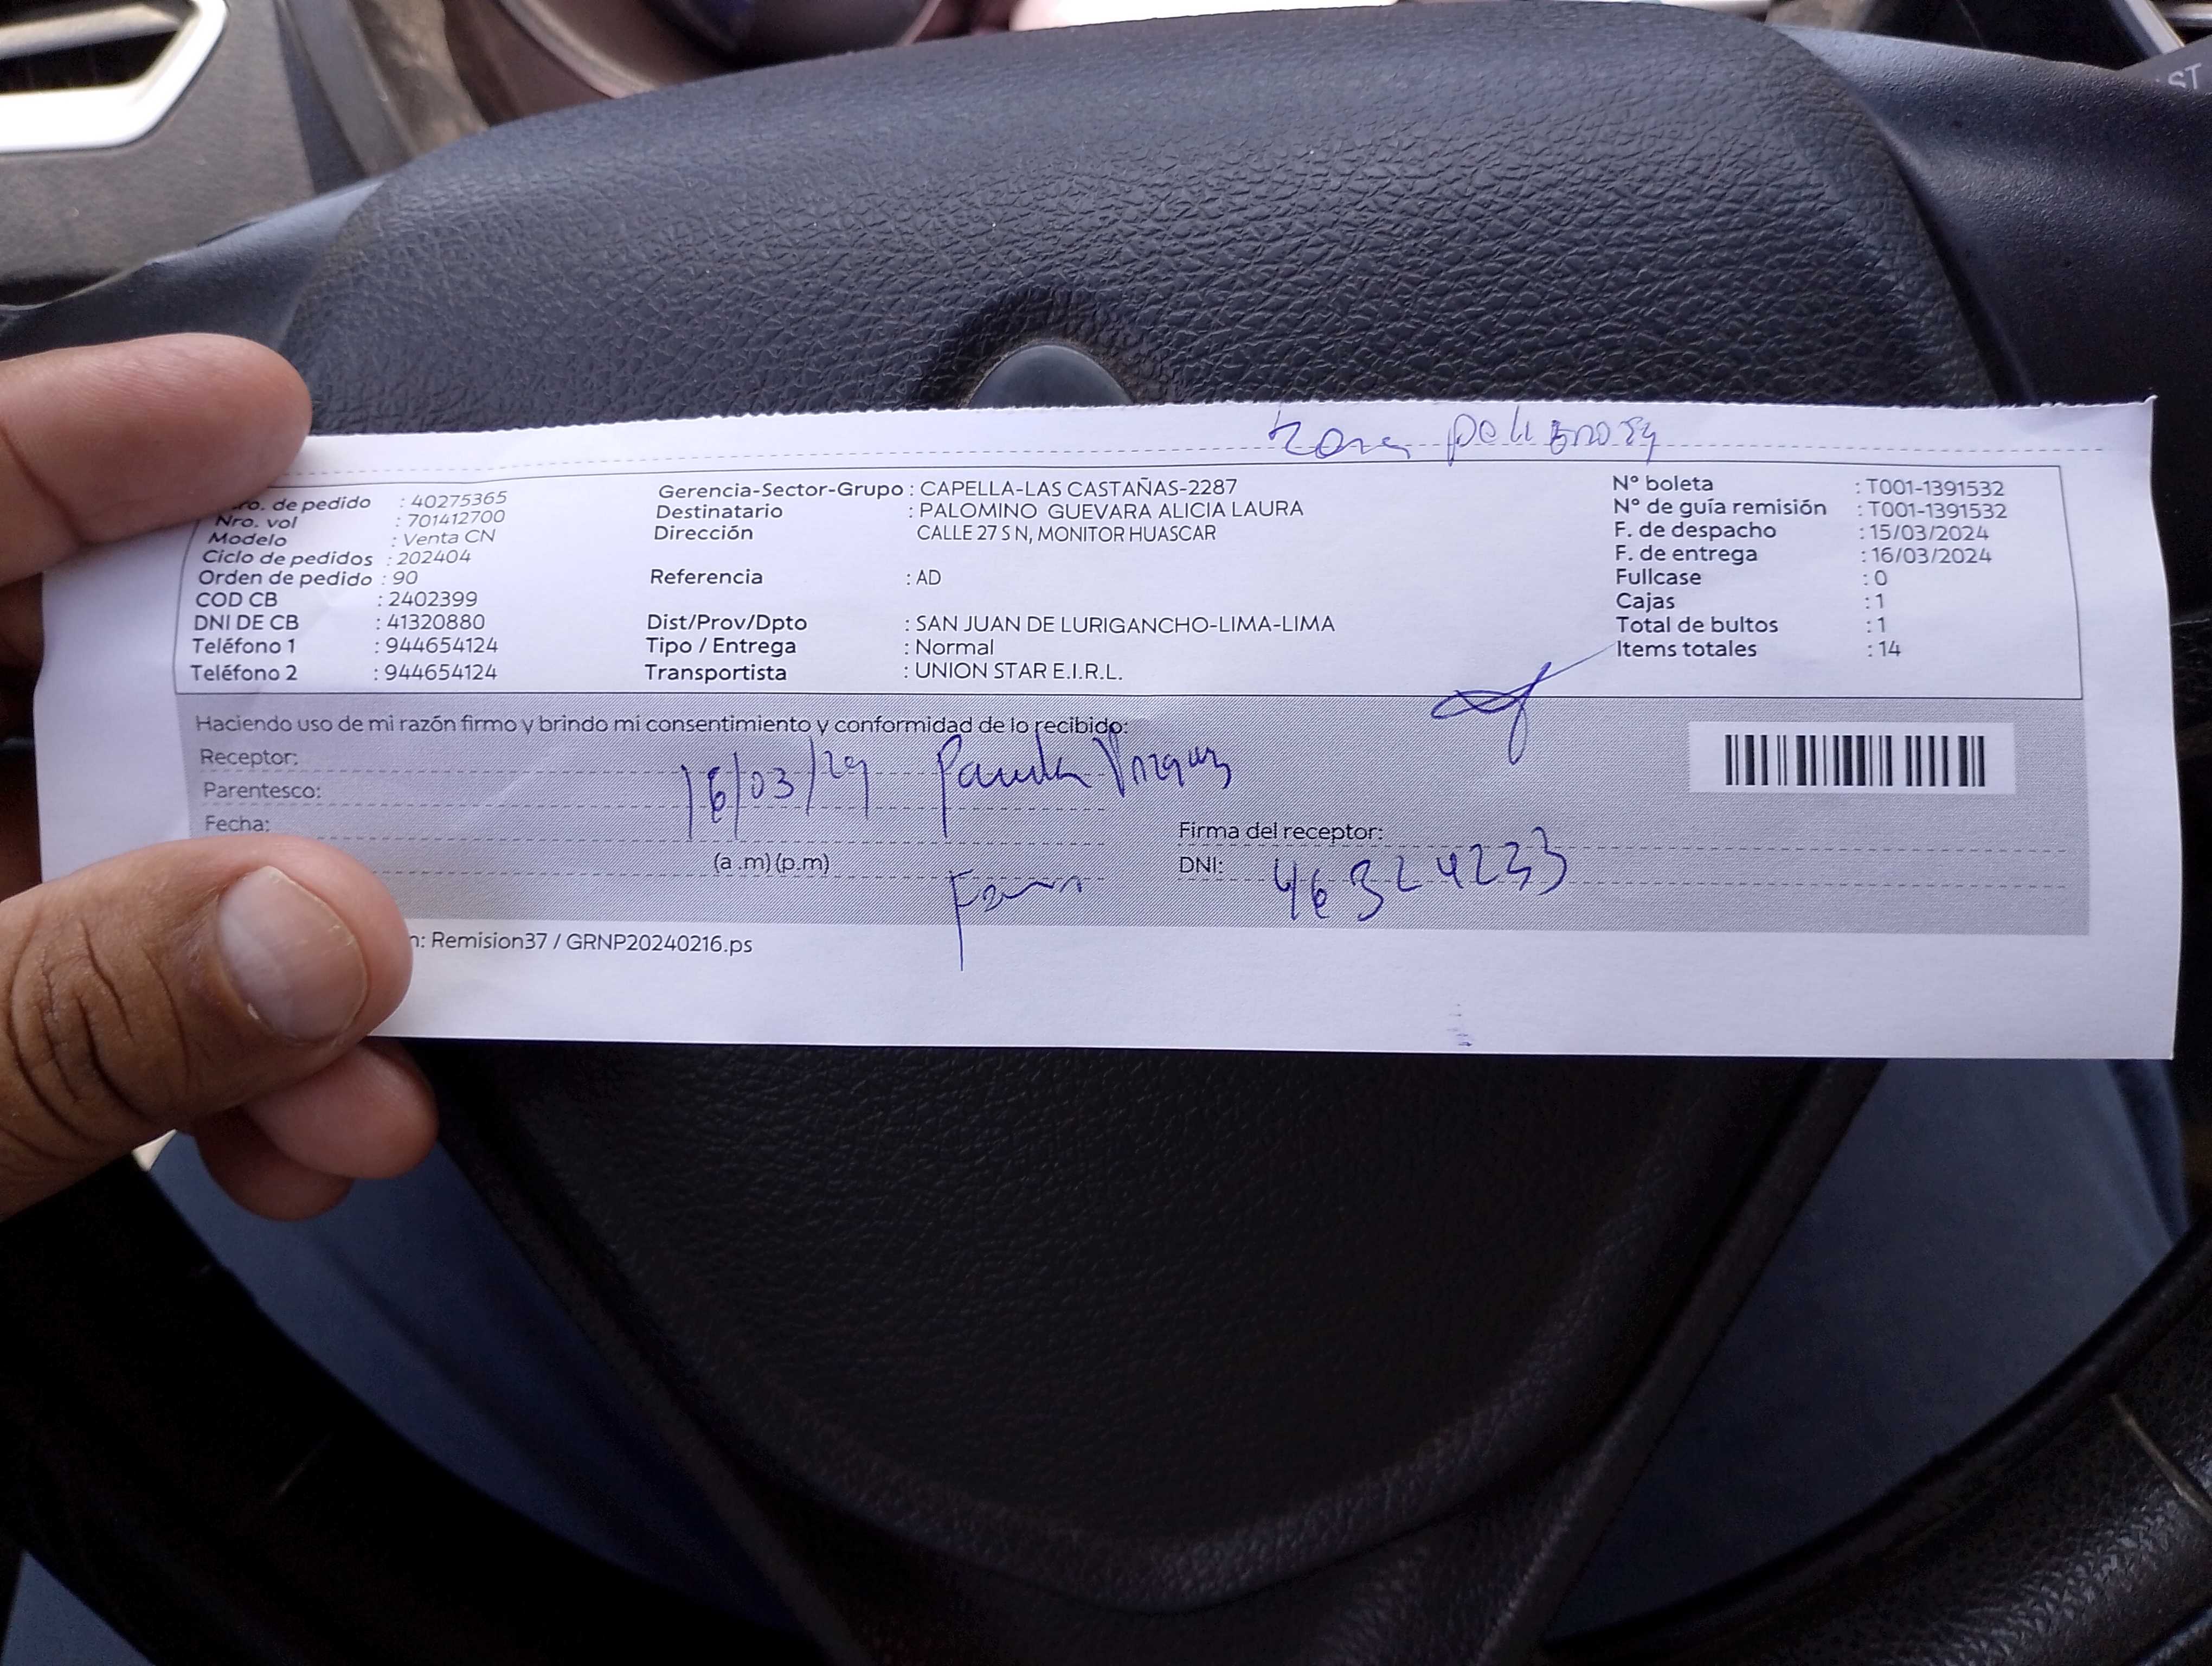 zona peligrosa
ro. de pedido : 40275365
Nro. vol : 701412700
Modelo : Venta CN
Ciclo de pedidos : 202404
Orden de pedido : 90
COD CB : 2402399
DNI DE CB : 41320880
Teléfono 1 : 944654124
Teléfono 2 : 944654124
Gerencia-Sector-Grupo : CAPELLA-LAS CASTAÑAS-2287
Destinatario : PALOMINO GUEVARA ALICIA LAURA
Dirección CALLE 27 S N, MONITOR HUASCAR
Referencia : AD
Dist/Prov/Dpto : SAN JUAN DE LURIGANCHO-LIMA-LIMA
Tipo / Entrega : Normal
Transportista : UNION STAR E.I.R.L.
N° boleta : T001-1391532
N° de guía remisión : T001-1391532
F. de despacho : 15/03/2024
F. de entrega : 16/03/2024
Fullcase : 0
Cajas : 1
Total de bultos : 1
Items totales : 14
Haciendo uso de mi razón firmo y brindo mi consentimiento y conformidad de lo recibido:
Receptor:
Parentesco:
16/03/24
Fecha:
(a .m) (p.m)
Firma del receptor:
DNI: 46324233
n: Remision37 / GRNP20240216.ps
ST